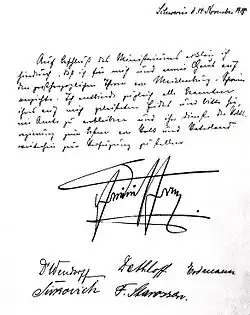 Schwerin d. 14 November 1918
Auf Beschluß des Ministeriums erkläre ich
hierdurch, daß ich für mich und mein Haus auf
den großherzoglichen Thron von Mecklenburg-Schwerin
verzichte. Ich entbinde zugleich alle Beamten
ihres mir geleisteten Eides und bitte sie,
im Amte zu verbleiben und ihre Dienste der Volks
regierung zum Besten von Volk und Vaterland
weiterhin zur Verfügung zu stellen
Friedrich Franz
D Wendorff Dethloff Erdmann
Sivkovich F. Starosson.